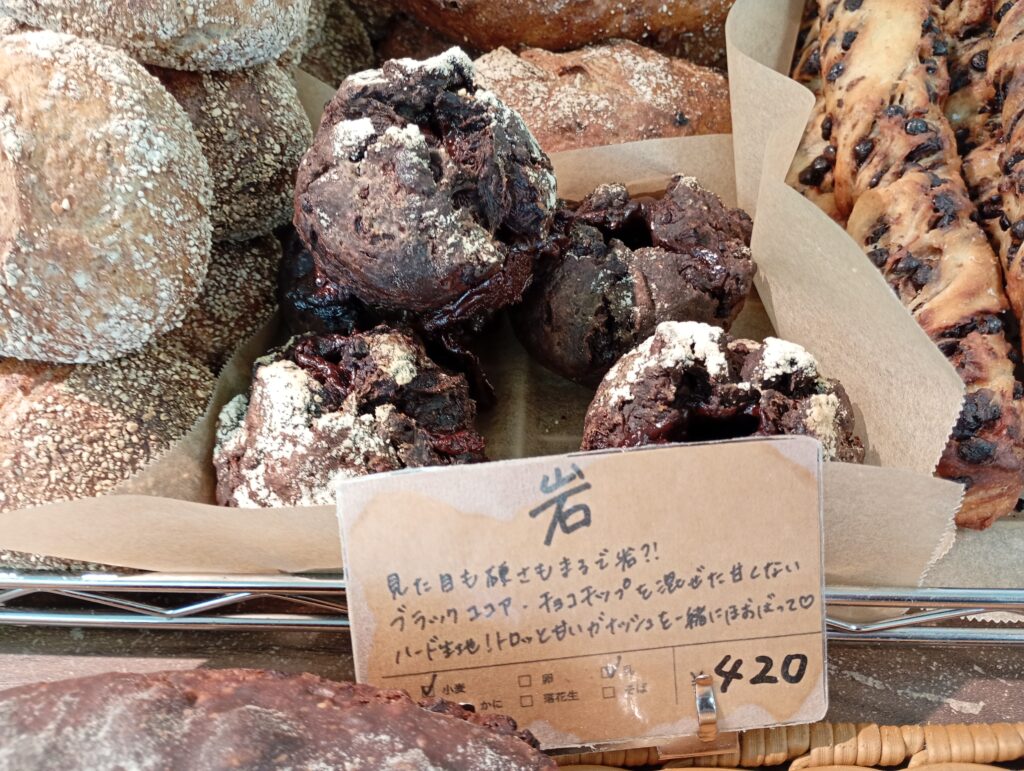 岩
見た目も硬さもまるで岩?!
ブラックココア・チョコチップを混ぜた甘くない
ハード生地!トロッと甘いガナッシュを一緒にほおばって♡
✓小麦 □卵 ✓乳
かに □落花生 □そば
¥420